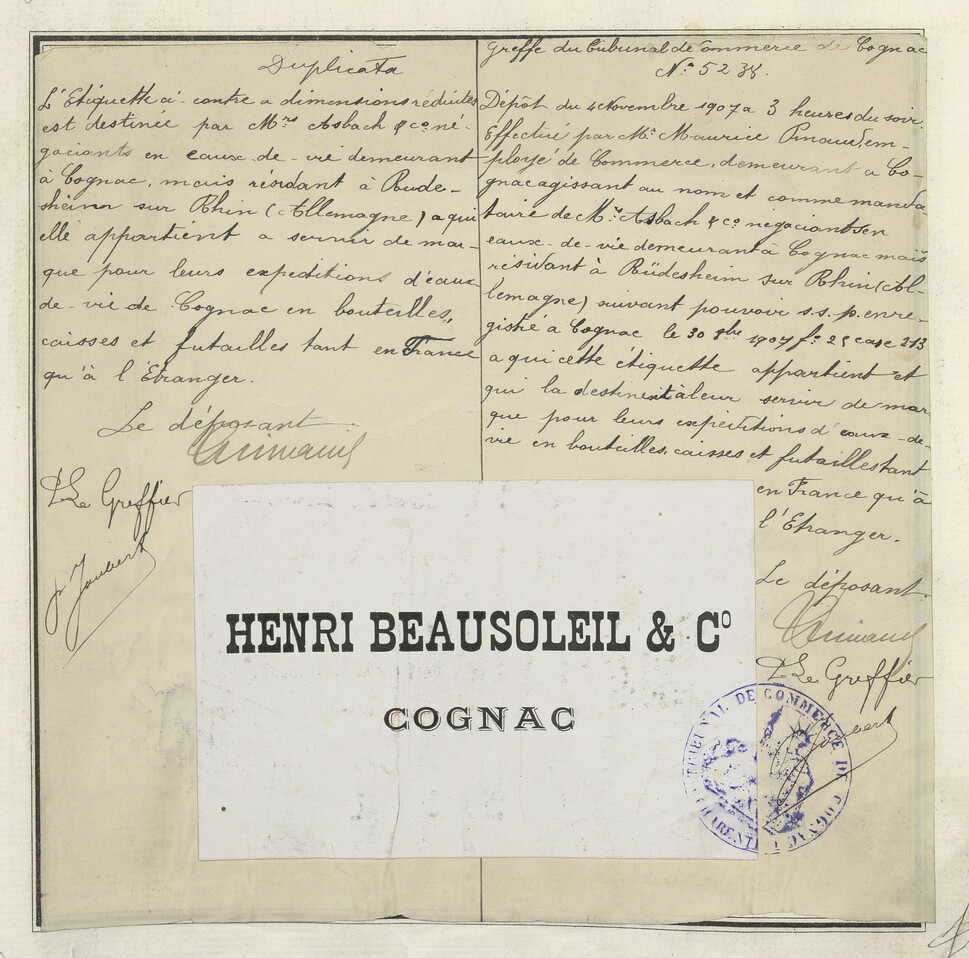 Duplicata
L'Etiquette ci-contre a dimensions réduites
est destinée par Mrs Asbach & Co né-
gociants en eaux-de-vie demeurant
à Cognac, mais résidant à Rude-
sheim sur Rhin (Allemagne) a qui
elle appartient a servir de mar-
que pour leurs expeditions d'eaux-
de-vie de Cognac en bouteilles,
caisses et futailles tant en France
qu'à l'Etranger.
Le déposant
Le Greffier
Joubert
Greffe du Tribunal de Commerce de Cognac
No 5238.
Dépôt du 4 Novembre 1907 a 3 heures du soir.
Effectué par Mr Maurice Pinaud em-
ployé de Commerce, demeurant a Co-
gnac agissant au nom et comme manda-
taire de Mrs Asbach & Co négociants en
eaux-de-vie demeurant à Cognac mais
résidant à Rüdesheim sur Rhin (Al-
lemagne) suivant pouvoir s.s.p. enre-
gistré à Cognac le 30 8bre 1907 fo 25 case 213
a qui cette étiquette appartient et
qui la destinent à leur servir de mar
que pour leurs expéditions d'eaux-de-
vie en bouteilles, caisses et futailles tant
en France qu'à
l'Etranger.
Le déposant
Le Greffier
HENRI BEAUSOLEIL & Co
COGNAC
TRIBUNAL DE COMMERCE DE COGNAC